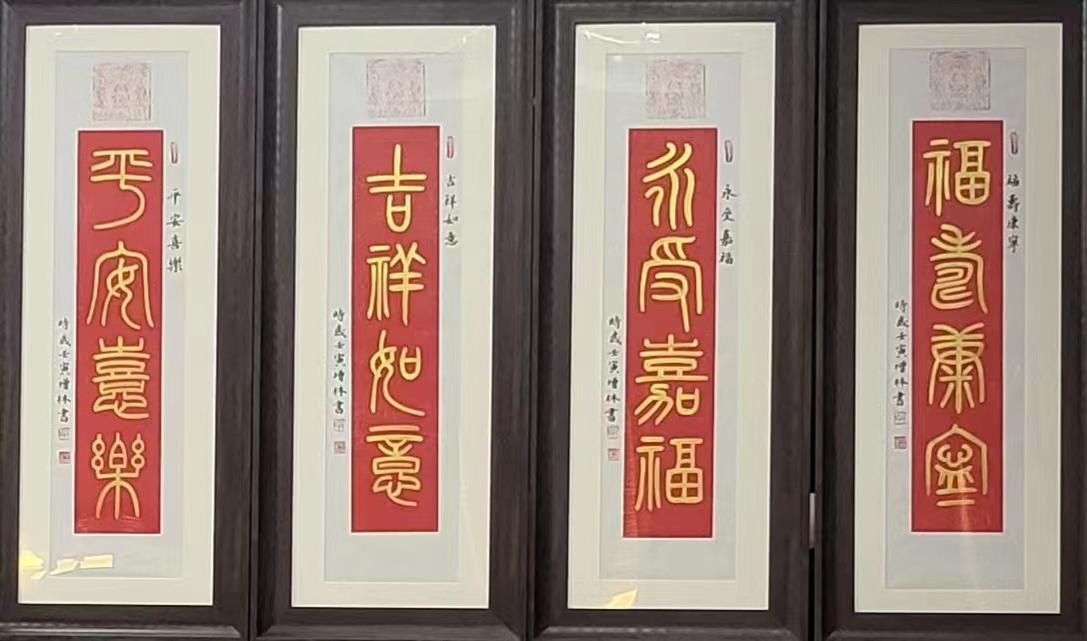 平安憙樂
平安喜樂
時歲壬寅增林書
吉祥如意
吉祥如意
時歲壬寅增林書
永受嘉福
永受嘉福
時歲壬寅增林書
福壽康寧
福壽康寧
時歲壬寅增林書